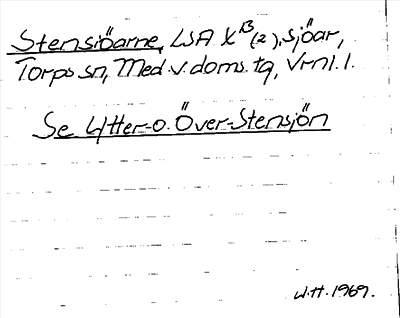 Stensjöarne, LSA X¹³(2), sjöar,
Torps sn, Med.v.doms.tg, Vrnl.l.
Se Ytter-o. Över-Stensjön
W.H. 1969.